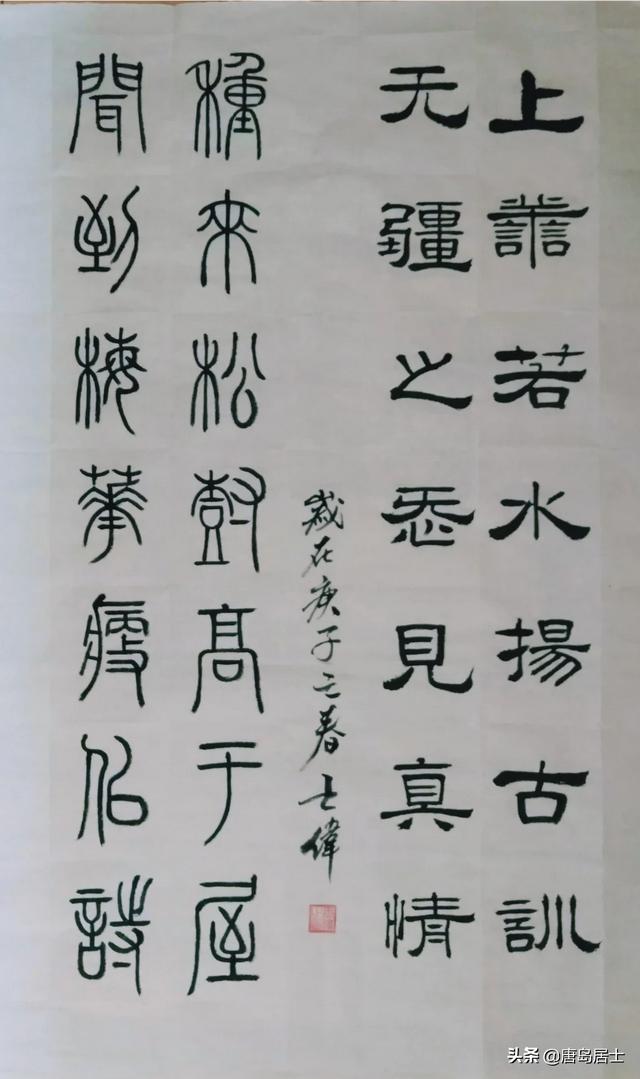 上譱若水揚古訓
无疆之㤅見真情
歲在庚子之春士偉
種來松尌高于屋
聞到梅華瘦佀詩
头条 @唐岛居士